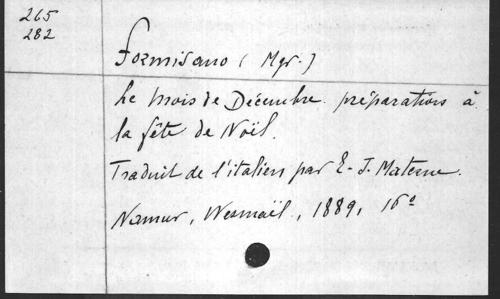 265
282
Formisano (Mgr.)
Le mois de Décembre. préparation à
la fête de Noël.
Traduit de l'italien par E.-J. Materne.
Namur, Wesmaël., 1889, 16°